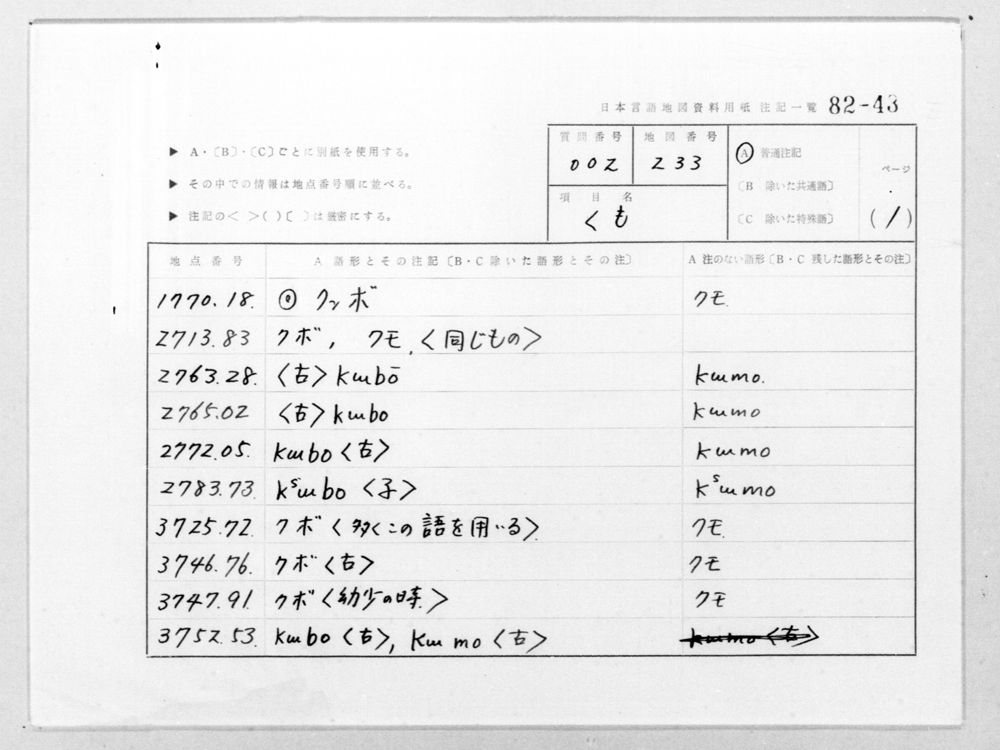 日本言語地図資料用紙 注記一覧 82-43
▶ A・〔B〕・〔C〕ごとに別紙を使用する。
▶ その中での情報は地点番号順に並べる。
▶ 注記の< >( )〔 〕は厳密にする。
質問番号 地図番号
002 233
項目名
くも
Ⓐ 普通注記
〔B 除いた共通語〕
〔C 除いた特殊語〕
ページ
(1)
地点番号 A 語形とその注記〔B・C 除いた語形とその注〕 A 注のない語形〔B・C 残した語形とその注〕
1770.18. ⊙ クンボ クモ.
2713.83 クボ, クモ.<同じもの>
2763.28. <古>kɯbō kɯmo.
2765.02 <古>kɯbo kɯmo
2772.05. kɯbo<古> kɯmo
2783.73. kˢɯbo<子> kˢɯmo
3725.72. クボ<多くこの語を用いる>. クモ.
3746.76. クボ<古> クモ
3747.91. クボ<幼少の時.> クモ
3752.53. kɯbo<古>, kɯmo<古> kɯmo<古>